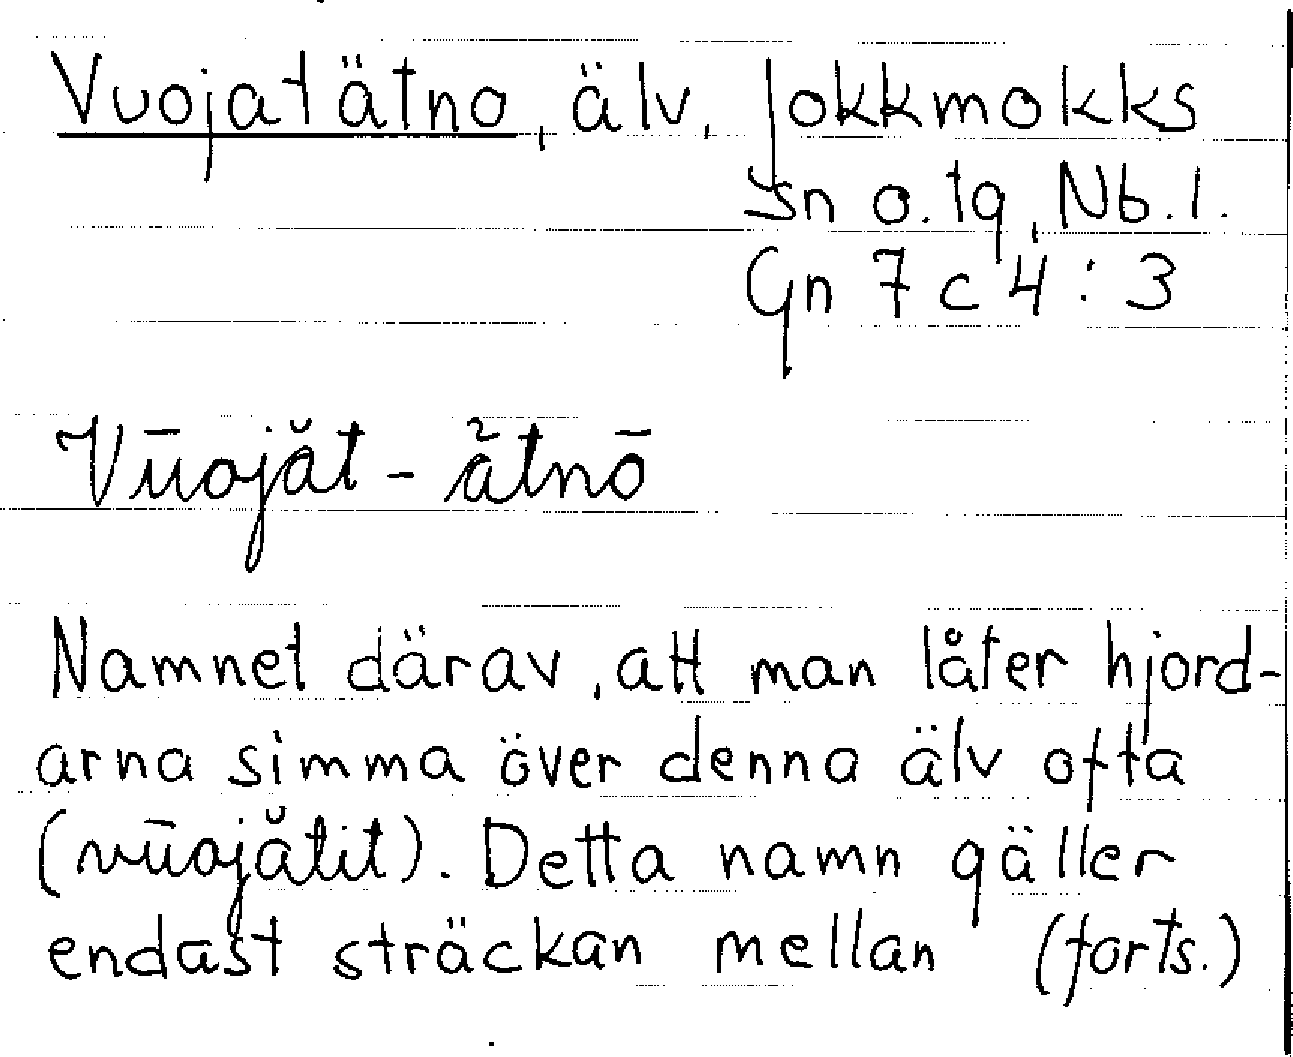 Vuojatätno, älv, Jokkmokks
sn o. tg, Nb. l.
Gn 7 c 4 : 3
Vūojăt - ätnō
Namnet därav, att man låter hjord-
arna simma över denna älv ofta
(vūojătit). Detta namn gäller
endast sträckan mellan (forts.)